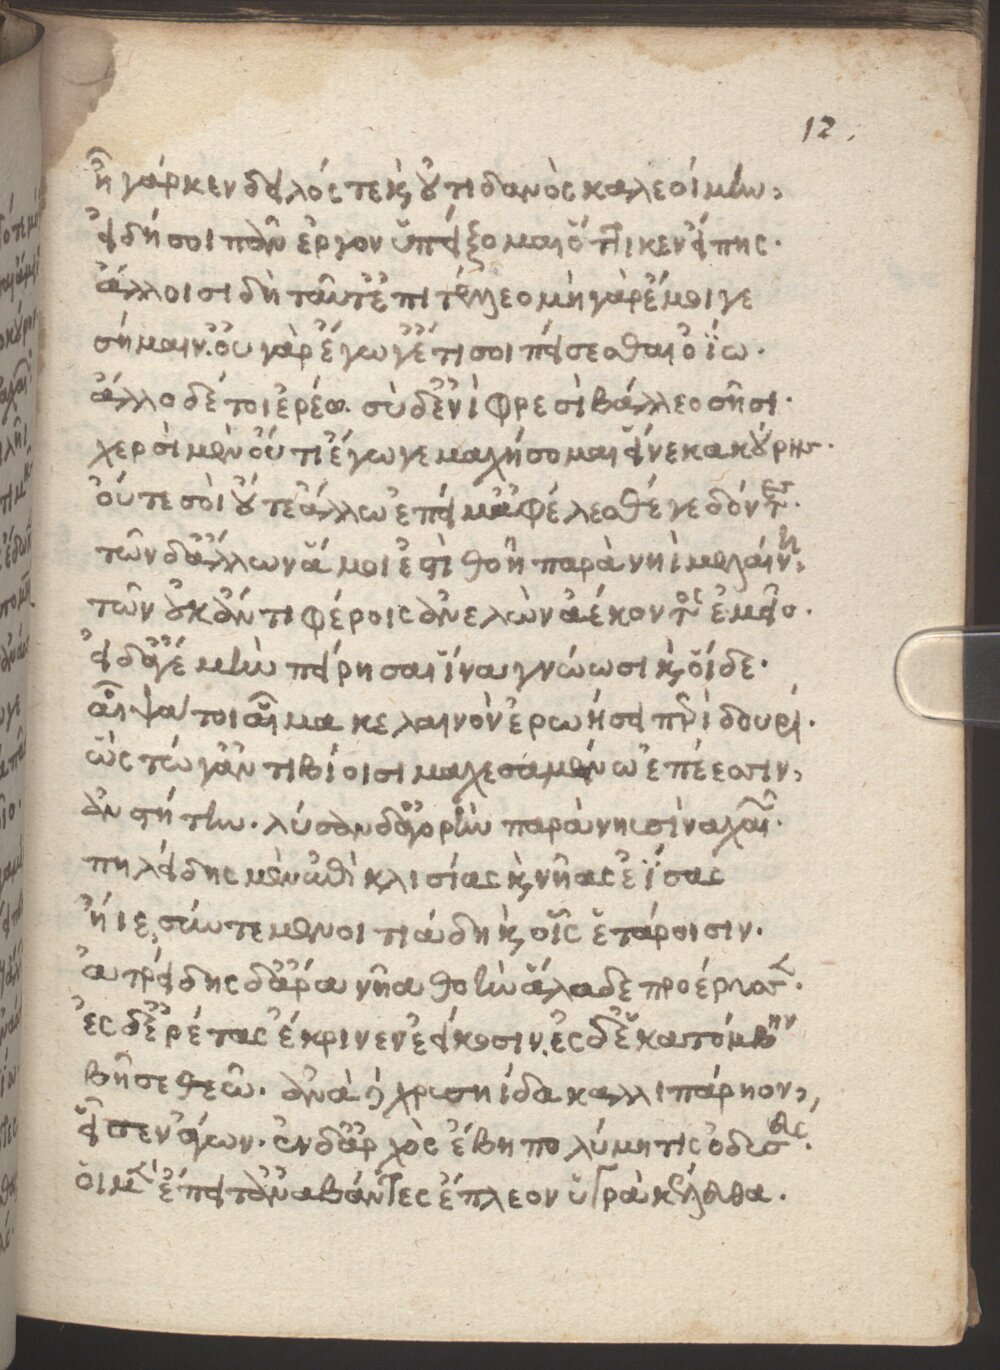 12.
ἦ γάρ κεν δειλός τε καὶ οὐτιδανὸς καλεοίμην,
εἰ δή σοι πᾶν ἔργον ὑπείξομαι ὅττι κεν εἴπης.
ἄλλοισι δὴ ταῦτ' ἐπιτέλλεο μὴ γὰρ ἔμοιγε
σήμαιν. οὐ γὰρ ἔγωγ' ἔτι σοι πείσεσθαι ὀΐω.
ἄλλο δέ τοι ἐρέω. σὺ δ' ἐνὶ φρεσὶ βάλλεο σῆσι.
χερσὶ μὲν οὔτι ἔγωγε μαχήσομαι εἵνεκα κούρης.
οὔτε σοὶ οὔτε ἄλλω ἐπεί μ' ἀφέλεσθέ γε δόντες.
τῶν δ' ἄλλων ἅ μοί ἐστι θοῇ παρὰ νηῒ μελαίνη,
τῶν οὐκ ἄν τι φέροις ἀνελὼν ἀέκοντος ἐμεῖο.
εἰ δ' ἄγέ μὴν πείρησαι ἵνα γνώωσι καὶ οἵδε.
αἶψά τοι αἷμα κελαινὸν ἐρωήσει περὶ δουρί.
ὣς τώγ' ἀντιβίοισι μαχεσαμένω ἐπέεσσιν,
ἀνστήτην. λύσαν δ' ἀγορὴν παρὰ νηυσὶν ἀχαιῶν.
πηλείδης μὲν ἐπὶ κλισίας καὶ νῆας ἐΐσας
ἤιε, σύν τε μενοιτιάδη καὶ οἷς ἑτάροισιν.
ἀτρείδης δ' ἄρα νῆα θοὴν ἅλαδε προέρυσσεν.
ἐς δ' ἐρέτας ἔκρινεν ἐείκοσιν, ἐς δ' ἑκατόμβην
βῆσε θεῶ. ἀνὰ δὲ χρυσηίδα καλλιπάρηον,
εἷσεν ἄγων. ἐν δ' ἀρχὸς ἔβη πολύμητις ὀδυσσεύς.
οἱ μὲν ἔπειτ' ἀναβάντες ἐπέπλεον ὑγρὰ κέλευθα.